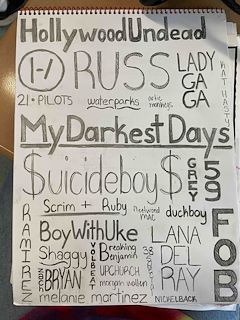 Hollywood Undead
RUSS
LADY
GA
GA
21 PILOTS
waterparks
arctic
monkeys
KAT HASTY
My Darkest Days
$uicideboy$
GREY
59
Scrim + Ruby
fleetwood
mac
duckboy
RAMIREZ
BoyWithUke
LANA
DEL
RAY
FOB
Shaggy
VOLBEAT
Breaking
Benjamin
ZACH
BRYAN
UPCHURCH
morgan wallen
melanie martinez
NICKELBACK